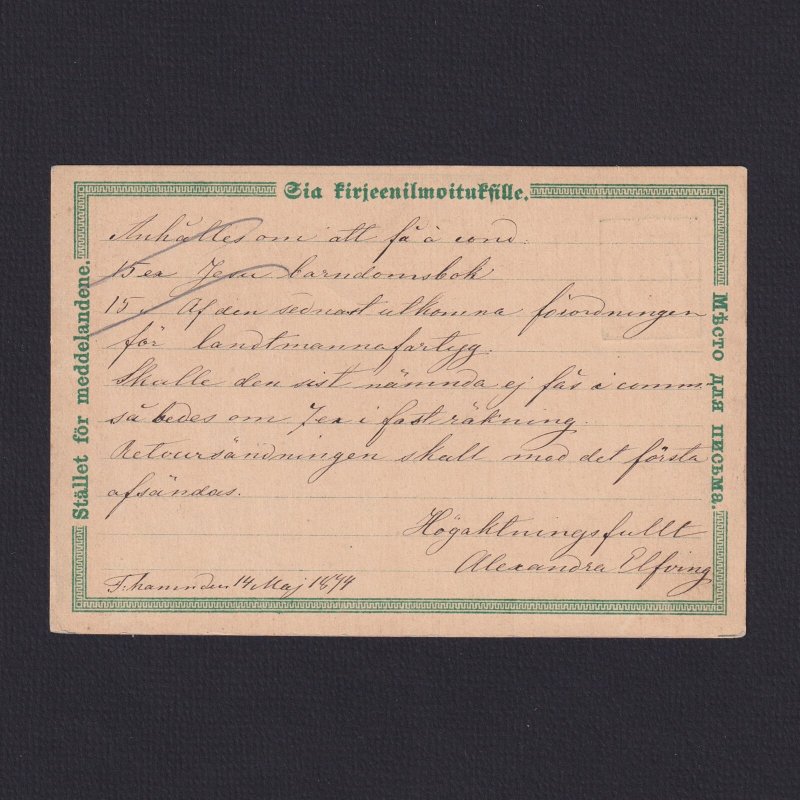 Sia kirjeenilmoituksille.
Stället för meddelandene.
Мѣсто для письма.
Anhålles om att få à cond:
15 ex Jesu barndomsbok
15 " Af den sednast utkomna förordningen
för landtmannafartyg.
Skulle den sist nämnda ej fås i comm-
så bedes om 7 ex i fast räkning.
Retoursändningen skall med det första
afsändas.
Högaktningsfullt
Alexandra Elfving
F:hamn den 14 Maj 1874